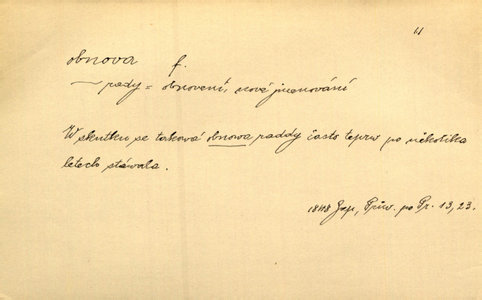 11
obnova f.
~ rady = obnovení, nové jmenování
W skutku se taková obnowa raddy často teprw po několika
letech stávala.
1848 Zap, Průw. po Pr. 13, 23.